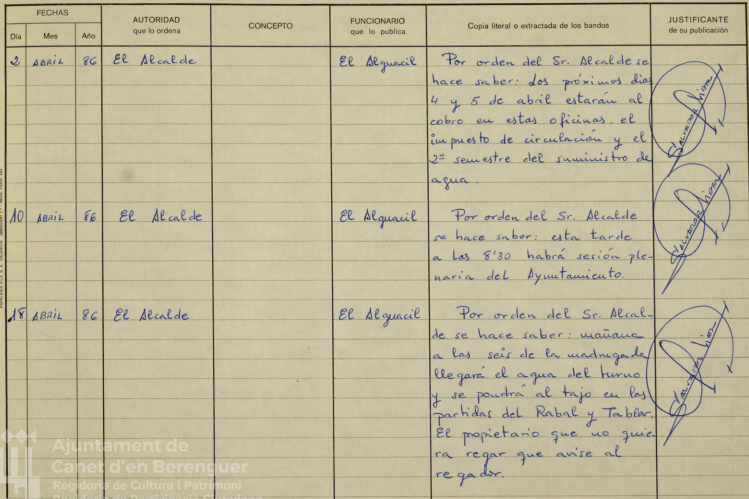 FECHAS
Día Mes Año
AUTORIDAD
que lo ordena
CONCEPTO
FUNCIONARIO
que lo publica
Copia literal o extractada de los bandos
JUSTIFICANTE
de su publicación
2 ABRIL 86 El Alcalde El Alguacil Por orden del Sr. Alcalde se
hace saber: Los próximos dias
4 y 5 de abril estarán al
cobro en estas oficinas, el
impuesto de circulación y el
2º semestre del suministro de
agua.
10 ABRIL 86 El Alcalde El Alguacil Por orden del Sr. Alcalde
se hace saber: esta tarde
a las 8'30 habrá sesión ple-
naria del Ayuntamiento.
18 ABRIL 86 El Alcalde El Alguacil Por orden del Sr. Alcal-
de se hace saber: mañana
a las seis de la madrugada
llegará el agua del turno
y se pondrá al tajo en las
partidas del Rabal y Tablar.
El propietario que no quie-
ra regar que avise al
regador.
Ajuntament de
Canet d'en Berenguer
Regidoria de Cultura i Patrimoni